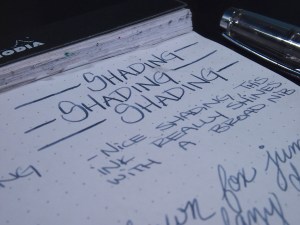 RHODIA
SHADING
SHADING
SHADING
- NICE SHADING, THIS
INK REALLY SHINES
WITH A BROAD NIB
fox jum